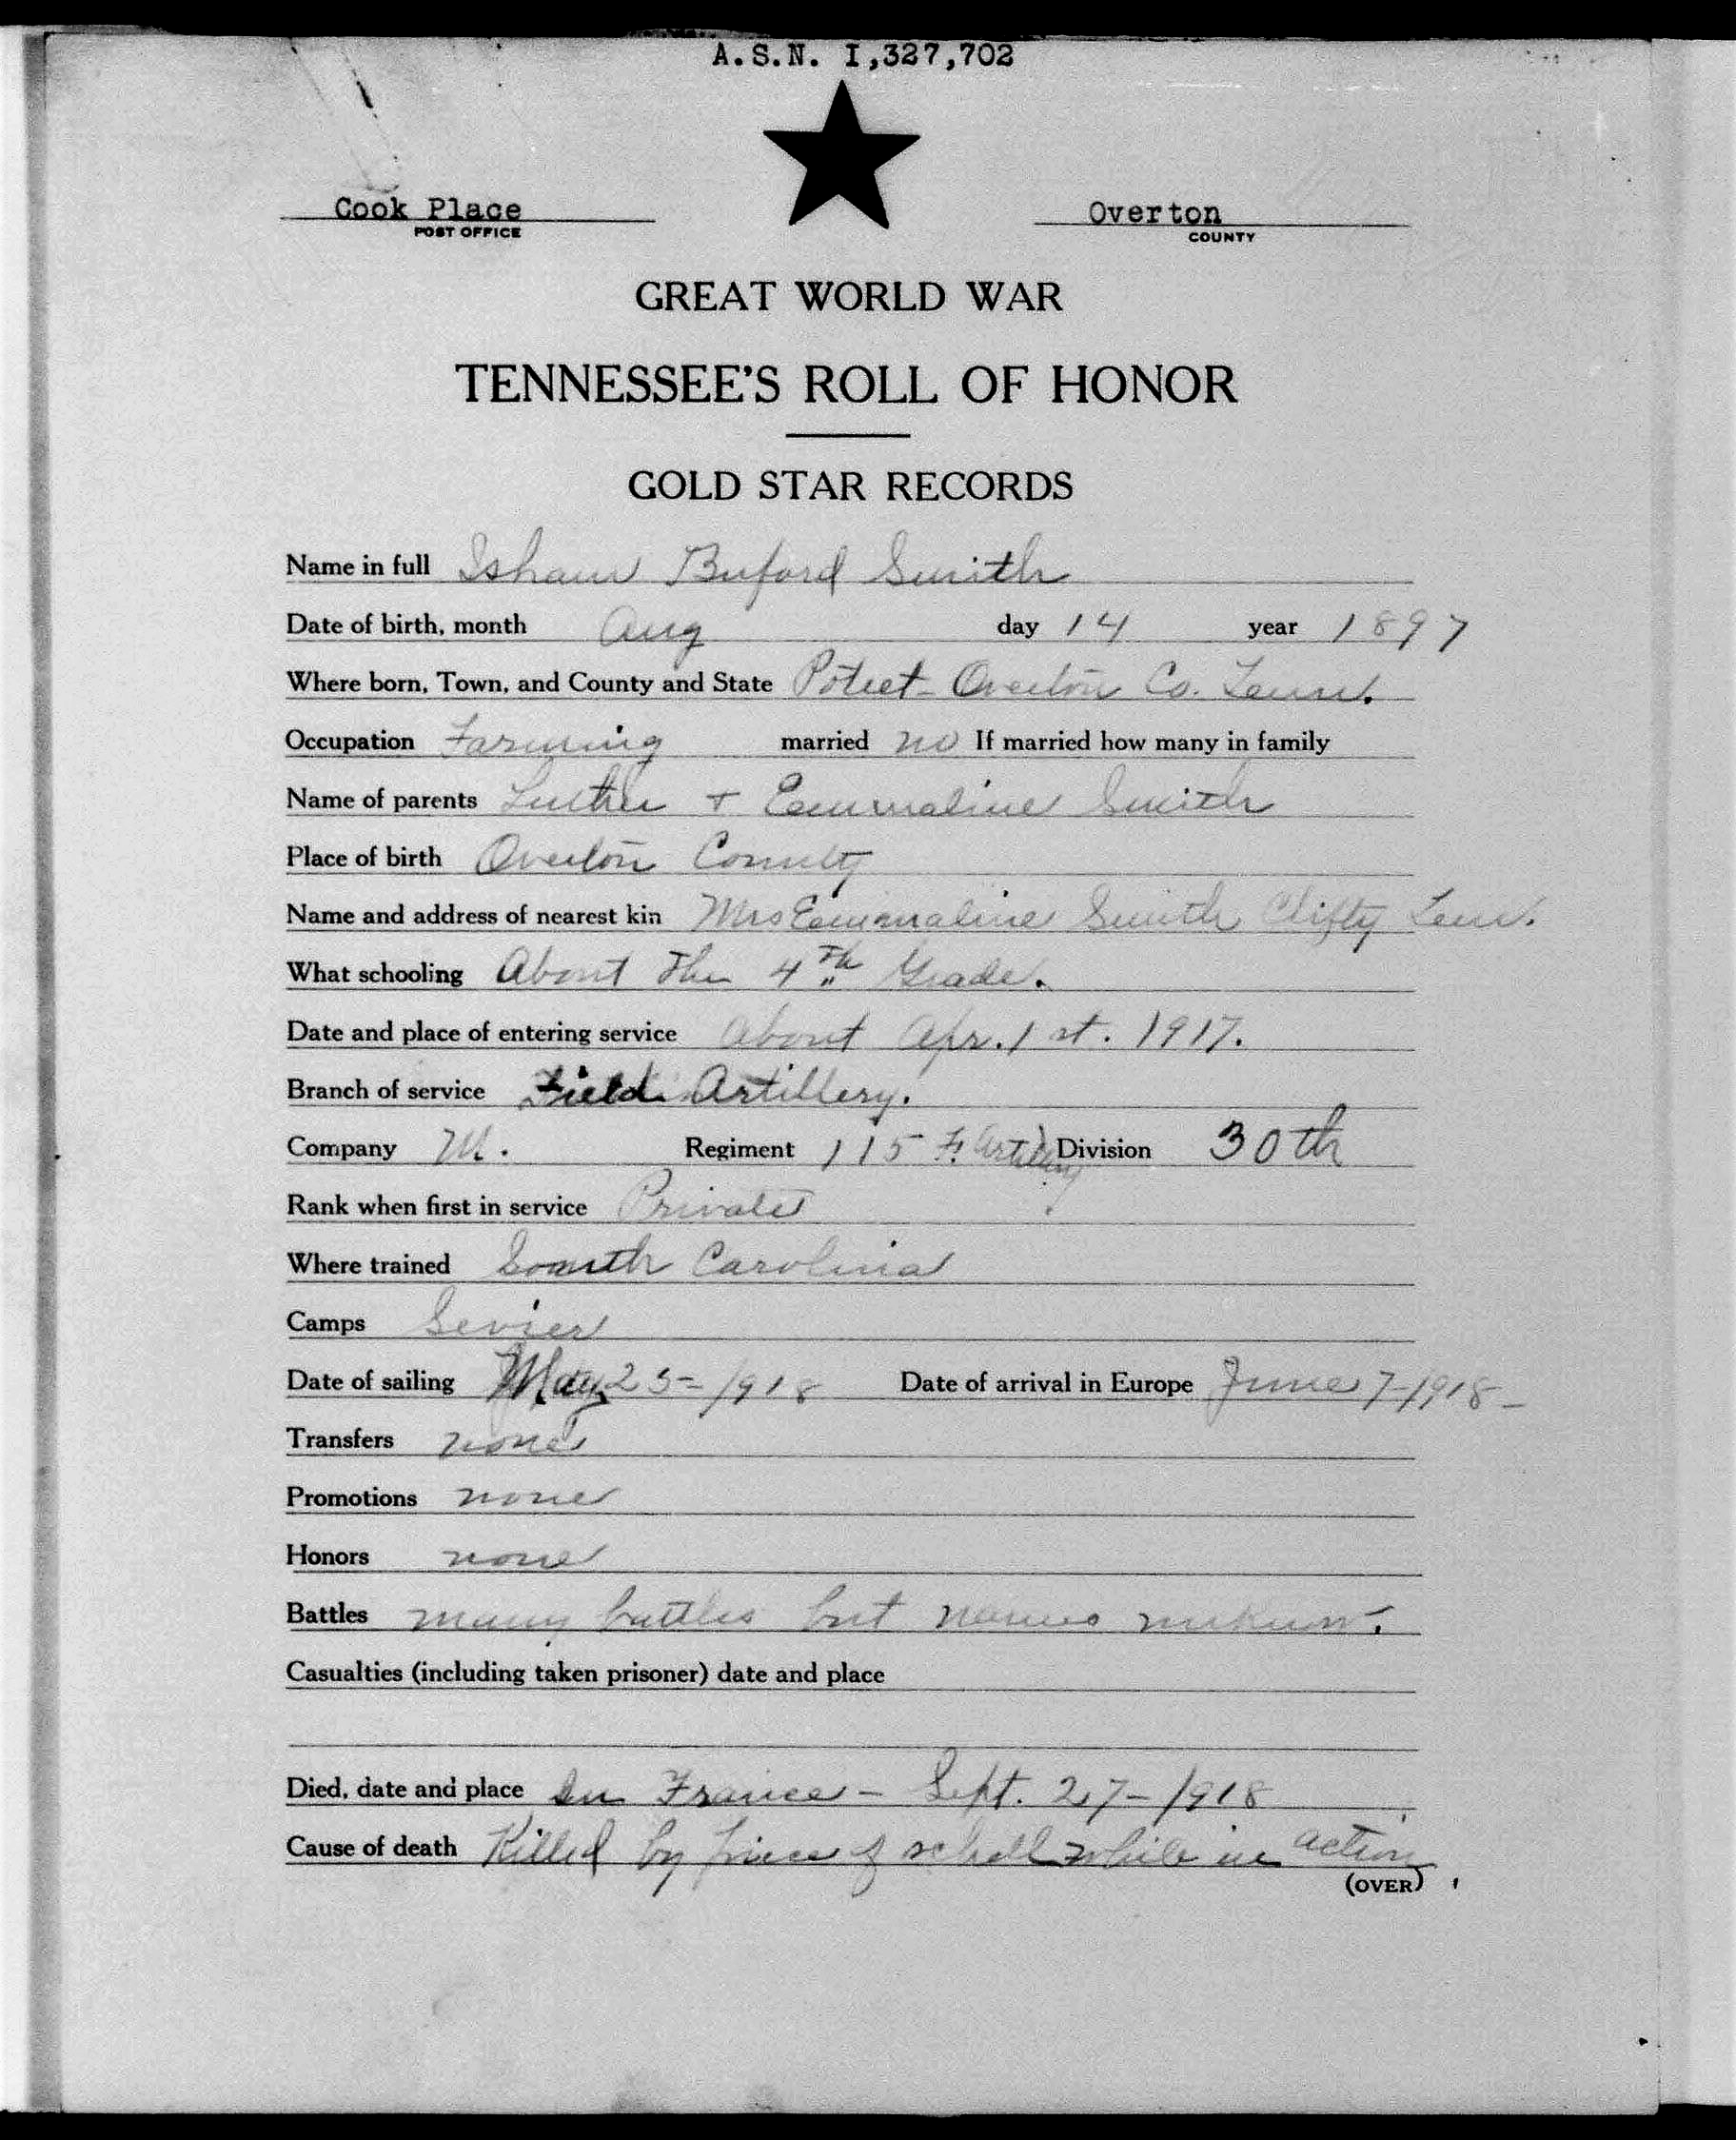 A.S.N. 1,327,702
Cook Place Overton
POST OFFICE COUNTY
GREAT WORLD WAR
TENNESSEE'S ROLL OF HONOR
GOLD STAR RECORDS
Name in full Isham Buford Smith
Date of birth, month Aug day 14 year 1897
Where born, Town, and County and State Poteet - Overton Co. Tenn.
Occupation Farming married no If married how many in family
Name of parents Luther + Emmaline Smith
Place of birth Overton County
Name and address of nearest kin Mrs Emmaline Smith Clifty Tenn.
What schooling About the 4th Grade.
Date and place of entering service about Apr. 1st. 1917.
Branch of service Field Artillery.
Company M. Regiment 115 F. Artillery Division 30th
Rank when first in service Private
Where trained South Carolina
Camps Sevier
Date of sailing May 25-1918 Date of arrival in Europe June 7-1918-
Transfers none
Promotions none
Honors none
Battles many battles but names unknown.
Casualties (including taken prisoner) date and place
Died, date and place In France - Sept. 27-1918
Cause of death Killed by piece of schell while in action
(OVER)